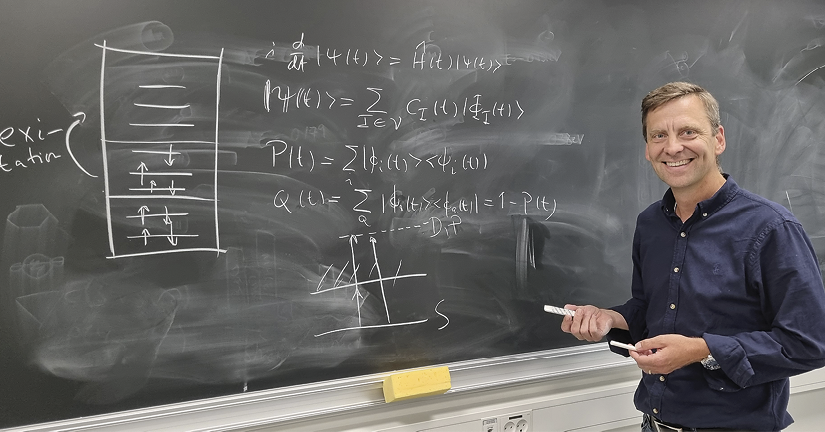 exi-
tation
i d/dt |Ψ(t)> = Ĥ(t)|Ψ(t)>
|Ψ(t)> = Σ_{I∈V} C_I(t)|Φ_I(t)>
P(t) = Σ_i |ϕ_i(t)><ϕ_i(t)
Q(t) = Σ_a |ϕ_a(t)><ϕ_a(t)| = 1 - P(t)
D,P
S